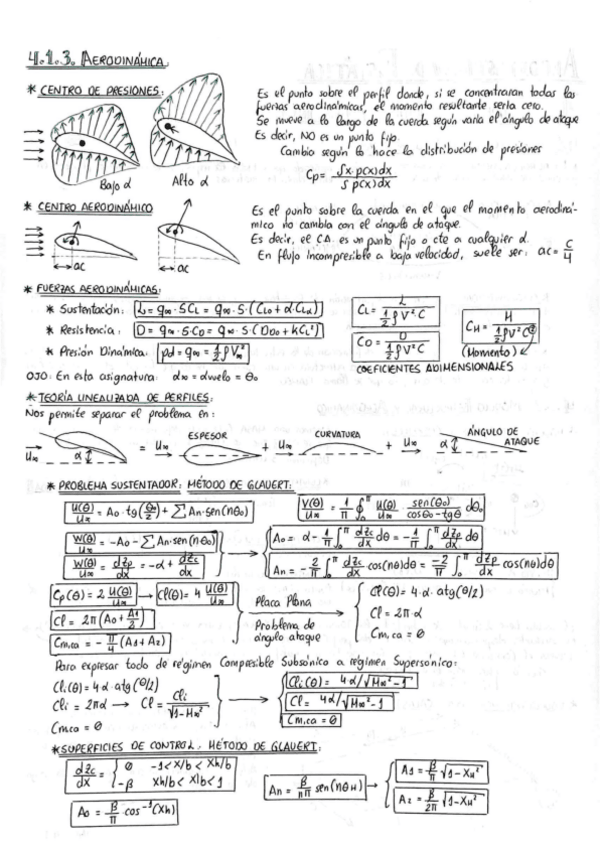 4.1.3. AERODINÁMICA
* CENTRO DE PRESIONES:
Es el punto sobre el perfil donde, si se concentraran todas las
fuerzas aerodinámicas, el momento resultante sería cero.
Se mueve a lo largo de la cuerda según varía el ángulo de ataque
Es decir, NO es un punto fijo.
Cambia según lo hace la distribución de presiones
Cp = ∫x·p(x)dx / ∫p(x)dx
Bajo α
Alto α
* CENTRO AERODINÁMICO
Es el punto sobre la cuerda en el que el momento aerodiná-
mico no cambia con el ángulo de ataque.
Es decir, el C.A. es un punto fijo o cte a cualquier α.
En flujo incompresible a baja velocidad, suele ser: ac = C/4
ac
ac
* FUERZAS AERODINÁMICAS:
* Sustentación: L = q∞·S·CL = q∞·S·(CL0 + α·CLα)
* Resistencia: D = q∞·S·CD = q∞·S·(CD0 + kCL²)
* Presión Dinámica: pd = q∞ = 1/2 ρV∞²
CL = L / 1/2 ρV²C
CD = D / 1/2 ρV²C
CM = M / 1/2 ρV²C²
(Momento)
COEFICIENTES ADIMENSIONALES
OJO: En esta asignatura: α∞ = αvuelo = θ0
* TEORÍA LINEALIZADA DE PERFILES:
Nos permite separar el problema en:
U∞ α = U∞ ESPESOR + U∞ CURVATURA + U∞ α ÁNGULO DE ATAQUE
* PROBLEMA SUSTENTADOR: MÉTODO DE GLAUERT:
U(θ)/U∞ = A0·tg(θ/2) + ∑An·sen(nθ0)
V(θ)/U∞ = 1/π ∮0^π U(θ)/U∞ sen(θ0)/cosθ0-tgθ dθ0
W(θ)/U∞ = -A0 - ∑An·sen(nθ0)
W(θ)/U∞ = dzp/dx = -α + dzc/dx
A0 = α - 1/π ∫0^π dzc/dx dθ = -1/π ∫0^π dzp/dx dθ
An = -2/π ∫0^π dzc/dx cos(nθ)dθ = -2/π ∫0^π dzp/dx cos(nθ)dθ
Cp(θ) = 2 U(θ)/U∞ → Cl(θ) = 4 U(θ)/U∞
Cl = 2π(A0 + A1/2)
Cm,ca = -π/4 (A1+A2)
Placa Plana
Problema de
ángulo ataque
Cl(θ) = 4·α·atg(θ/2)
Cl = 2π·α
Cm,ca = 0
Para expresar todo de régimen Compresible Subsónico a régimen Supersónico:
Cli(θ) = 4·α·atg(θ/2)
Cli = 2πα → Cl = Cli/√1-M∞²
Cm,ca = 0
Cli(θ) = 4α/√M∞²-1
Cl = 4α/√M∞²-1
Cm,ca = 0
* SUPERFICIES DE CONTROL, MÉTODO DE GLAUERT:
dzc/dx = { 0 -1<x/b<Xh/b
-β Xh/b<x/b<1
A0 = β/π cos⁻¹(Xh)
An = β/nπ sen(nθH) →
A1 = β/π √1-XH²
A2 = β/2π √1-XH²